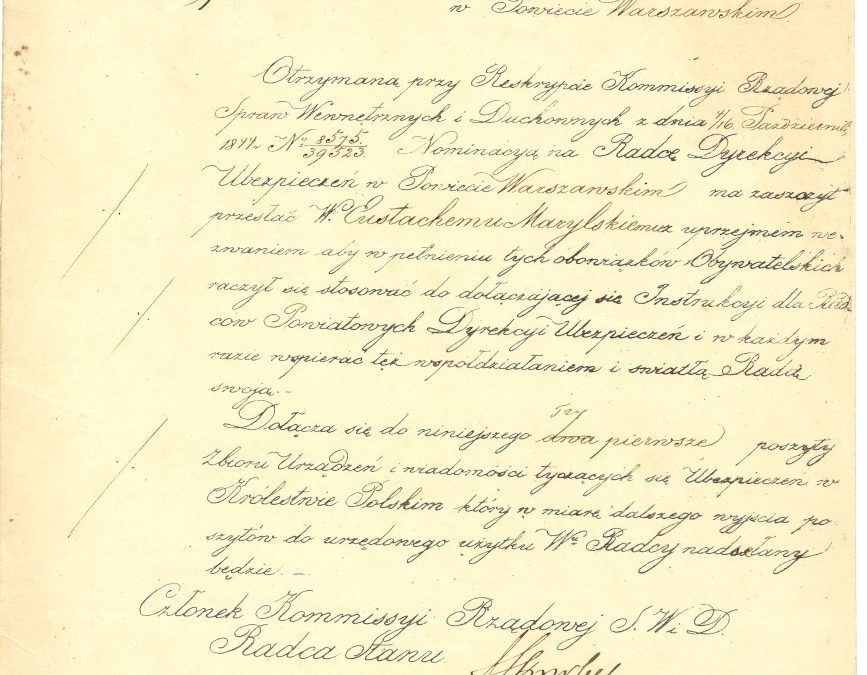 w Powiecie Warszawskim
Otrzymaną przy Reskrypcie Kommissyi Rządowej
Spraw Wewnętrznych i Duchownych z dnia 4/16 Październik
1844 r. No 8575/39523. Nominacyą na Radcę Dyrekcyi
Ubezpieczeń w Powiecie Warszawskim ma zaszczyt
przesłać W. Eustachemu Marylskiemu z uprzejmem we-
zwaniem aby w pełnieniu tych obowiązków Obywatelskich
raczył się stosować do dołączającej się Instrukcyi dla Rad
ców Powiatowych Dyrekcyi Ubezpieczeń i w każdym
razie wspierać też współdziałaniem i światłą Radą
swoją.-
Dołącza się do niniejszego trzy dwa pierwsze poszyty
Zbioru Urządzeń i wiadomości tyczących się Ubezpieczeń w
Królestwie Polskim który w miarę dalszego wyjścia po-
szytów do urzędowego użytku Wo Radcy nadesłany
będzie.-
Członek Kommissyi Rządowej S. W i D.
Radca Stanu